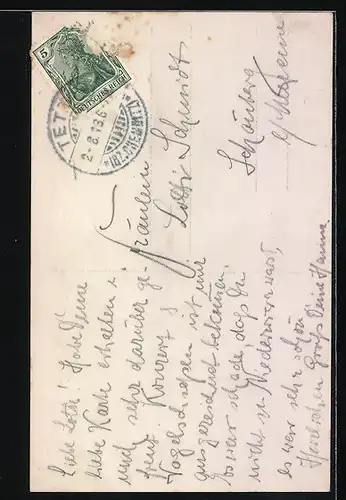 5
DEUTSCHES REICH
TET
2.8.13.6
Fräulein
Lotte Schmidt
Schönberg
Liebe Lotte! Habe Deine
liebe Karte erhalten u.
mich sehr darüber ge-
freut. Konzert &
Vogelschießen ist mir
ausgezeichnet bekommen.
Es war schade daß Du
nicht in Niederwarst,
es war sehr schön
Herzlichen Gruß Deine Hanna